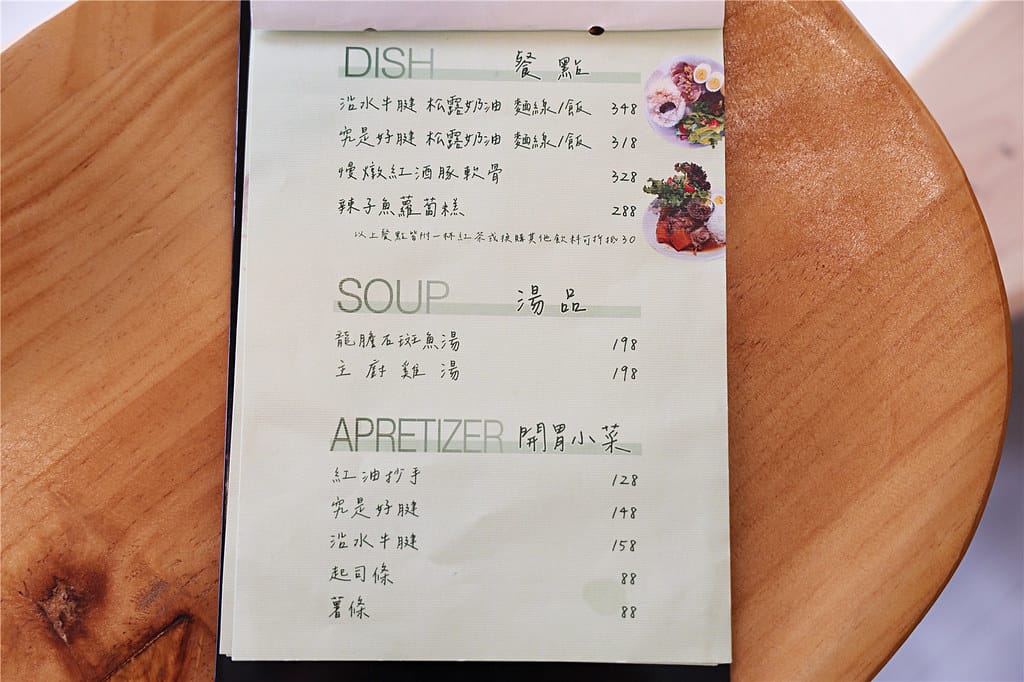 DISH 餐點
沿水牛腱 松露奶油 麵線/飯 348
究是好腱 松露奶油 麵線/飯 318
慢燉紅酒豚軟骨 328
辣子魚蘿蔔糕 288
以上餐點皆附一杯紅茶或換購其他飲料可折抵30
SOUP 湯品
龍膽石斑魚湯 198
主廚雞湯 198
APRETIZER 開胃小菜
紅油抄手 128
究是好腱 148
沿水牛腱 158
起司條 88
薯條 88